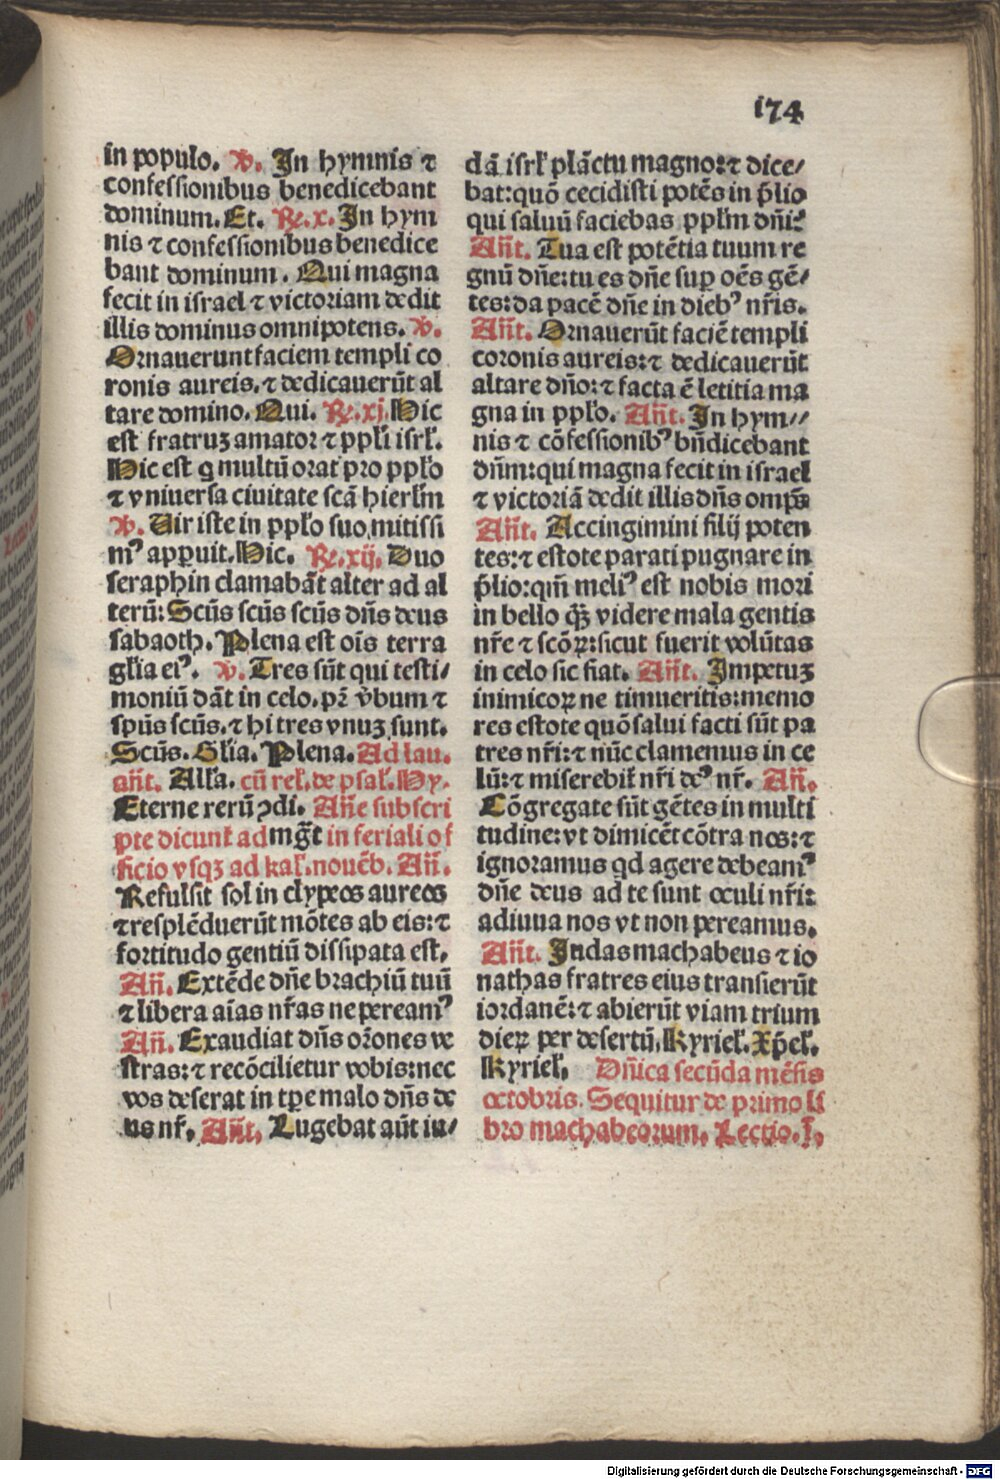 174
in populo. ℣. In hymnis ⁊
confessionibus benedicebant
dominum. Et. ℟. x. In hym
nis ⁊ confessionibus benedice
bant dominum. Qui magna
fecit in israel ⁊ victoriam dedit
illis dominus omnipotens. ℣.
Ornauerunt faciem templi co
ronis aureis. ⁊ dedicauerūt al
tare domino. Qui. ℟. xj. Hic
est fratruꝫ amator ⁊ ppłi isrł.
Hic est q multū orat pro ppło
⁊ vniuersa ciuitate scā hierłm
℣. Uir iste in ppło suo mitissi
mꝰ apꝑuit. Hic. ℟. xij. Duo
seraphin clamabāt alter ad al
terū: Scūs scūs scūs dn̄s deus
sabaoth. Plena est oīs terra
głia eiꝰ. ℣. Tres sūt qui testi/
moniū dāt in celo. pr̄ v̄bum ⁊
spūs scūs. ⁊ hi tres vnuꝫ sunt.
Scūs. Głia. Plena. Ad lau.
an̄t. Alła. cū reł. de psał. Hy.
Eterne rerū ꝯdi. An̄e subscri
pte dicunt̄ ad mg̅t in feriali of
ficio vsqꝫ ad kał. nouēb. An̄.
Refulsit sol in clypeos aureos
⁊ resplēduerūt mōtes ab eis: ⁊
fortitudo gentiū dissipata est.
An̄. Extēde dn̄e brachiū tuū
⁊ libera aīas nr̄as ne pereamꝰ
An̄. Exaudiat dn̄s or̄ones ve
stras: ⁊ recōcilietur vobis: nec
vos deserat in tp̄e malo dn̄s de
us nr̄. An̄t. Lugebat aūt iu/
dā isrł plāctu magno: ⁊ dice/
bat: quō cecidisti potēs in p̄lio
qui saluū faciebas ppłm dn̄i:
An̄t. Tua est potētia tuum re
gnū dn̄e: tu es dn̄e suꝑ oēs gē/
tes: da pacē dn̄e in diebꝰ nr̄is.
An̄t. Ornauerūt faciē templi
coronis aureis: ⁊ dedicauerūt
altare dn̄o: ⁊ facta ē letitia ma
gna in ppło. An̄t. In hym//
nis ⁊ cōfessionibꝰ bn̄dicebant
dn̄m: qui magna fecit in israel
⁊ victoriā dedit illis dn̄s omp̄s
An̄t. Accingimini filij poten
tes: ⁊ estote parati pugnare in
p̄lio: qm̄ meliꝰ est nobis mori
in bello qꝫ̄ videre mala gentis
nr̄e ⁊ scōꝝ: sicut fuerit volūtas
in celo sic fiat. An̄t. Impetuꝫ
inimicoꝝ ne timueritis: memo
res estote quō salui facti sūt pa
tres nr̄i: ⁊ nūc clamemus in ce
lū: ⁊ miserebit̄ nr̄i deꝰ nr̄. An̄.
Cōgregate sūt gētes in multi
tudine: vt dimicēt cōtra nos: ⁊
ignoramus qd agere debeamꝰ
dn̄e deus ad te sunt oculi nr̄i:
adiuua nos vt non pereamus.
An̄t. Iudas machabeus ⁊ io
nathas fratres eius transierūt
iordanē: ⁊ abierūt viam trium
dieꝝ per desertū. Kyrieł. Xp̄eł.
Kyrieł. Dn̄ica secūda mēsis
octobris. Sequitur de primo li
bro machabeorum. Lectio. I.
Digitalisierung gefördert durch die Deutsche Forschungsgemeinschaft - DFG